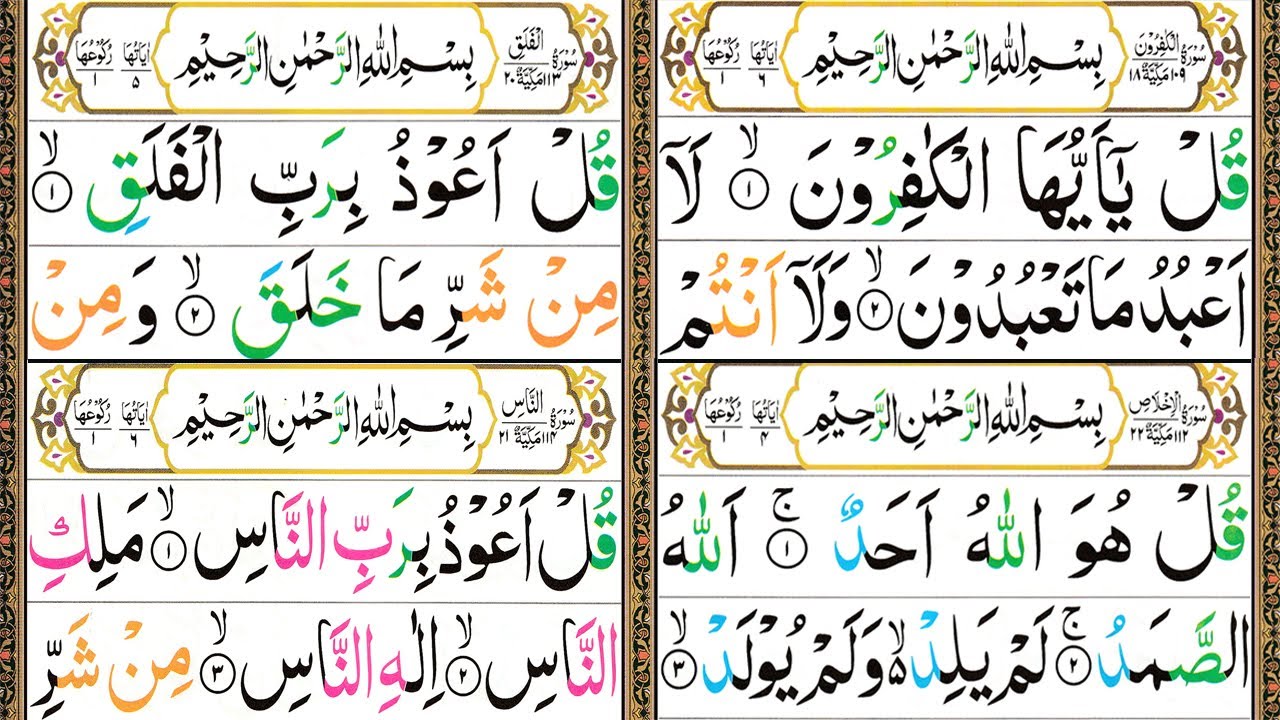 سُوْرَةُ الْكٰفِرُوْنَ مَكِّيَّةٌ ١٠٩ ١٨
بِسْمِ اللّٰهِ الرَّحْمٰنِ الرَّحِيْمِ
اٰيَاتُهَا ٦ رُكُوْعُهَا ١
قُلْ يٰۤاَيُّهَا الْكٰفِرُوْنَ ۙ ١ لَاۤ
اَعْبُدُ مَا تَعْبُدُوْنَ ۙ ٢ وَلَاۤ اَنْتُمْ
سُوْرَةُ الْفَلَقِ مَكِّيَّةٌ ١١٣ ٢٠
بِسْمِ اللّٰهِ الرَّحْمٰنِ الرَّحِيْمِ
اٰيَاتُهَا ٥ رُكُوْعُهَا ١
قُلْ اَعُوْذُ بِرَبِّ الْفَلَقِ ۙ ١
مِنْ شَرِّ مَا خَلَقَ ۙ ٢ وَمِنْ
سُوْرَةُ الْاِخْلَاصِ مَكِّيَّةٌ ١١٢ ٢٢
بِسْمِ اللّٰهِ الرَّحْمٰنِ الرَّحِيْمِ
اٰيَاتُهَا ٤ رُكُوْعُهَا ١
قُلْ هُوَ اللّٰهُ اَحَدٌ ۚ ١ اَللّٰهُ
الصَّمَدُ ۚ ٢ لَمْ يَلِدْ ۙ٥ وَلَمْ يُوْلَدْ ۙ ٣
سُوْرَةُ النَّاسِ مَكِّيَّةٌ ١١٤ ٢١
بِسْمِ اللّٰهِ الرَّحْمٰنِ الرَّحِيْمِ
اٰيَاتُهَا ٦ رُكُوْعُهَا ١
قُلْ اَعُوْذُ بِرَبِّ النَّاسِ ۙ ١ مَلِكِ
النَّاسِ ۙ ٢ اِلٰهِ النَّاسِ ۙ ٣ مِنْ شَرِّ